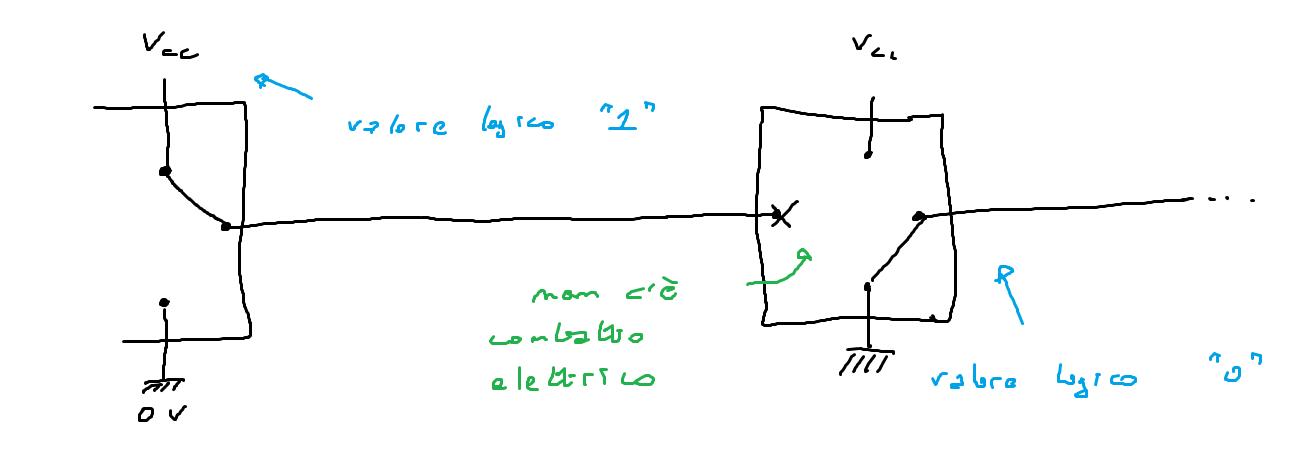 Vcc
Vcc
valore logico "1"
non c'è
contatto
elettrico
valore logico "0"
0 V